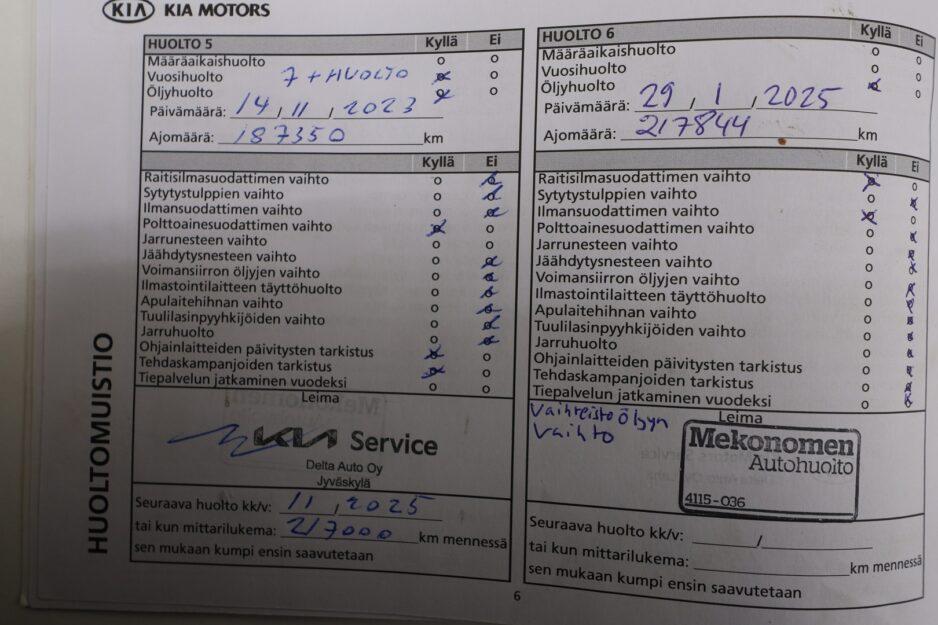 KIA KIA MOTORS
HUOLTO 5 Kyllä Ei
Määräaikaishuolto o o
Vuosihuolto 7 + HUOLTO o o
Öljyhuolto o o
Päivämäärä: 14 / 11 / 2023
Ajomäärä: 187350 km
Kyllä Ei
Raitisilmasuodattimen vaihto o o
Sytytystulppien vaihto o o
Ilmansuodattimen vaihto o o
Polttoainesuodattimen vaihto o o
Jarrunesteen vaihto o o
Jäähdytysnesteen vaihto o o
Voimansiirron öljyjen vaihto o o
Ilmastointilaitteen täyttöhuolto o o
Apulaitehihnan vaihto o o
Tuulilasinpyyhkijöiden vaihto o o
Jarruhuolto o o
Ohjainlaitteiden päivitysten tarkistus o o
Tehdaskampanjoiden tarkistus o o
Tiepalvelun jatkaminen vuodeksi o o
Leima
KIA Service
Delta Auto Oy
Jyväskylä
Seuraava huolto kk/v: 11 / 2025
tai kun mittarilukema: 217000 km mennessä
sen mukaan kumpi ensin saavutetaan
HUOLTO 6 Kyllä Ei
Määräaikaishuolto o o
Vuosihuolto o o
Öljyhuolto o o
Päivämäärä: 29 / 1 / 2025
Ajomäärä: 217844 km
Kyllä Ei
Raitisilmasuodattimen vaihto o o
Sytytystulppien vaihto o o
Ilmansuodattimen vaihto o o
Polttoainesuodattimen vaihto o o
Jarrunesteen vaihto o o
Jäähdytysnesteen vaihto o o
Voimansiirron öljyjen vaihto o o
Ilmastointilaitteen täyttöhuolto o o
Apulaitehihnan vaihto o o
Tuulilasinpyyhkijöiden vaihto o o
Jarruhuolto o o
Ohjainlaitteiden päivitysten tarkistus o o
Tehdaskampanjoiden tarkistus o o
Tiepalvelun jatkaminen vuodeksi o o
Leima
Vaihteistoöljyn
vaihto
Mekonomen
Autohuolto
4115-036
Seuraava huolto kk/v: /
tai kun mittarilukema: km mennessä
sen mukaan kumpi ensin saavutetaan
HUOLTOMUISTIO
6